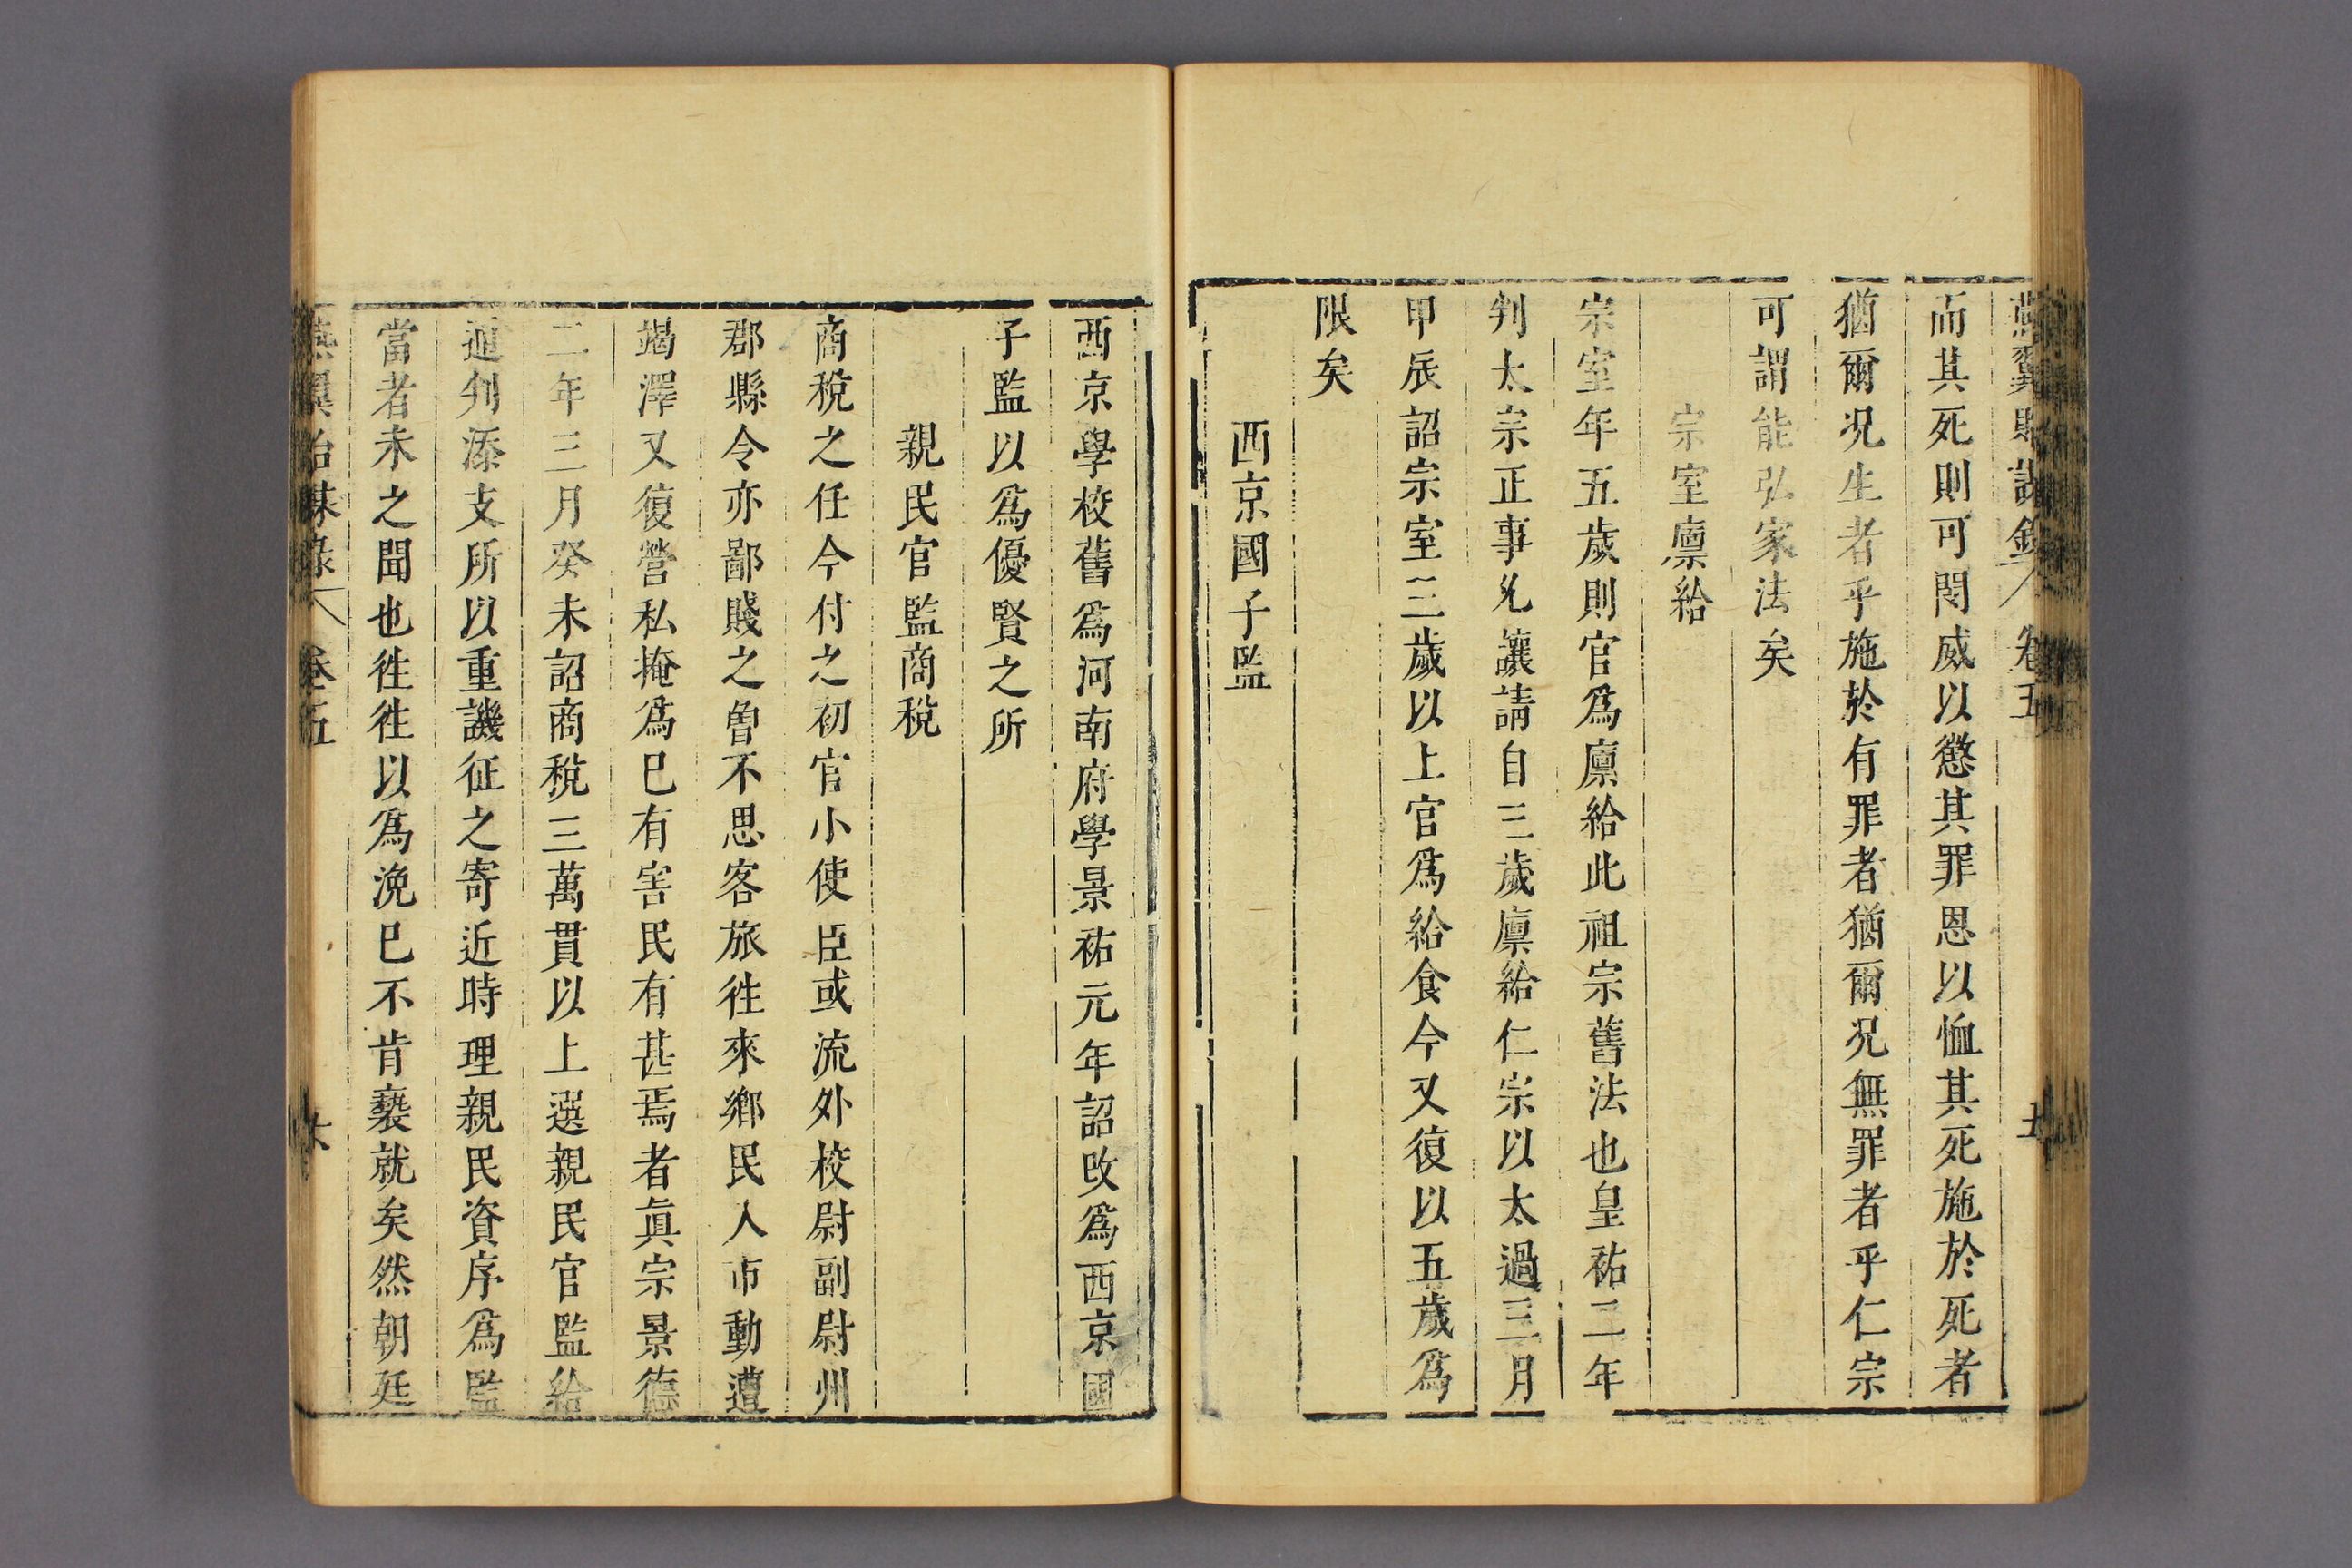 燕翼貽謀錄 卷五 五
而其死則可閔威以懲其罪恩以恤其死施於死者
猶爾況生者乎施於有罪者猶爾況無罪者乎仁宗
可謂能弘家法矣
宗室廪給
宗室年五歲則官爲廪給此祖宗舊法也皇祐二年
判太宗正事允讓請自三歲廪給仁宗以太過三月
甲辰詔宗室三歲以上官爲給食今又復以五歲爲
限矣
西京國子監
西京學校舊爲河南府學景祐元年詔改爲西京國
子監以爲優賢之所
親民官監商稅
商稅之任今付之初官小使臣或流外校尉副尉州
郡縣令亦鄙賤之曾不思客旅徃來鄉民入市動遭
竭澤又復營私掩爲已有害民有甚焉者眞宗景德
二年三月癸未詔商稅三萬貫以上選親民官監給
通判添支所以重譏征之寄近時理親民資序爲監
當者未之聞也徃徃以爲浼已不肯褻就矣然朝廷
燕翼詒謀錄 卷五 六